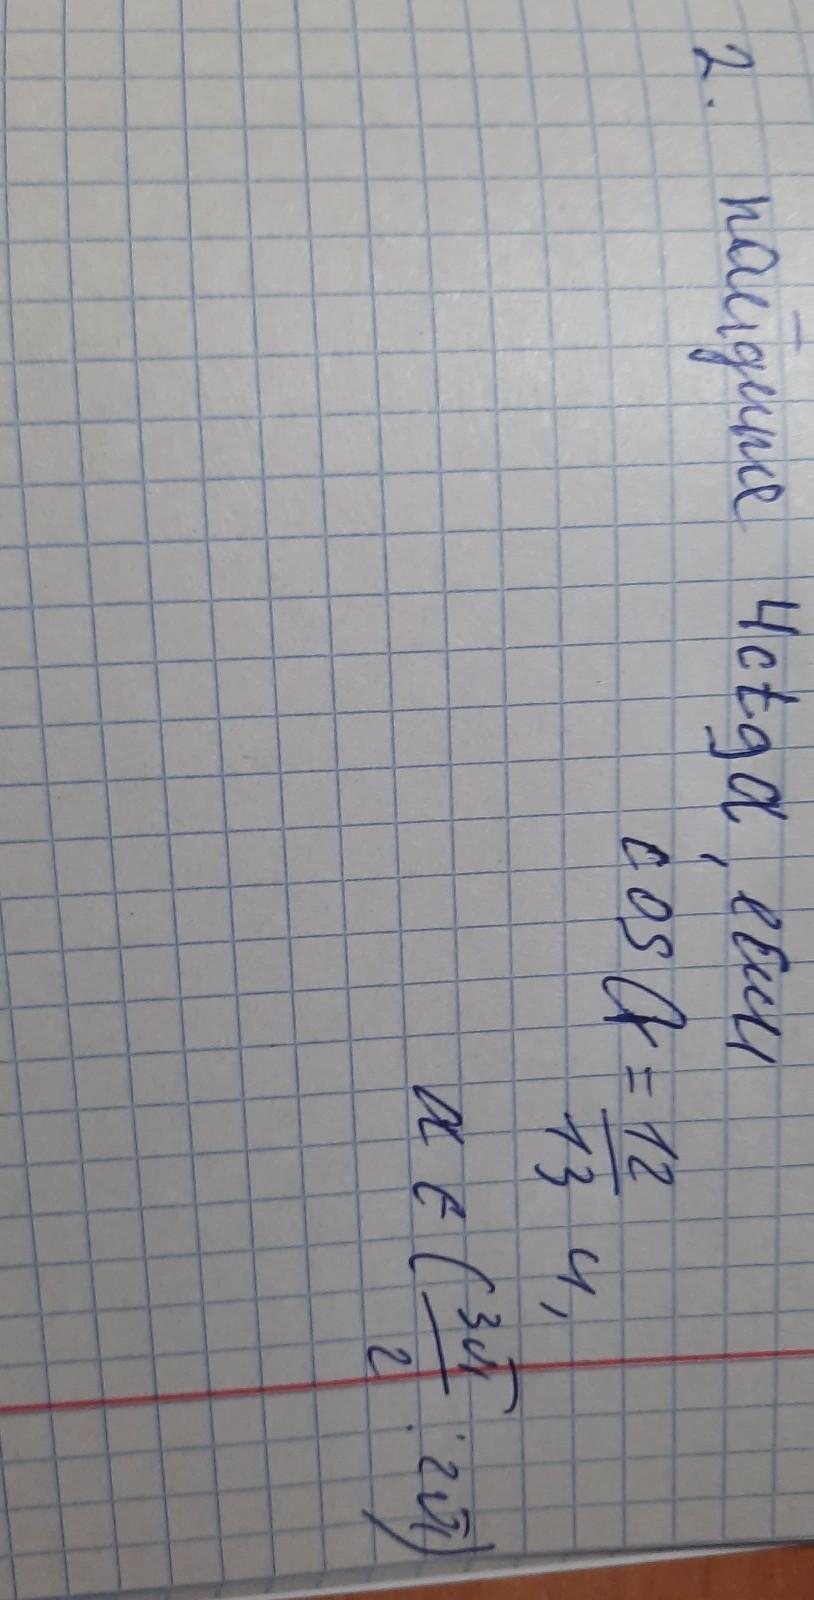 2. найдите 4ctgα, если
cos α = 12/13 и,
α ∈ (3π/2 ; 2π)